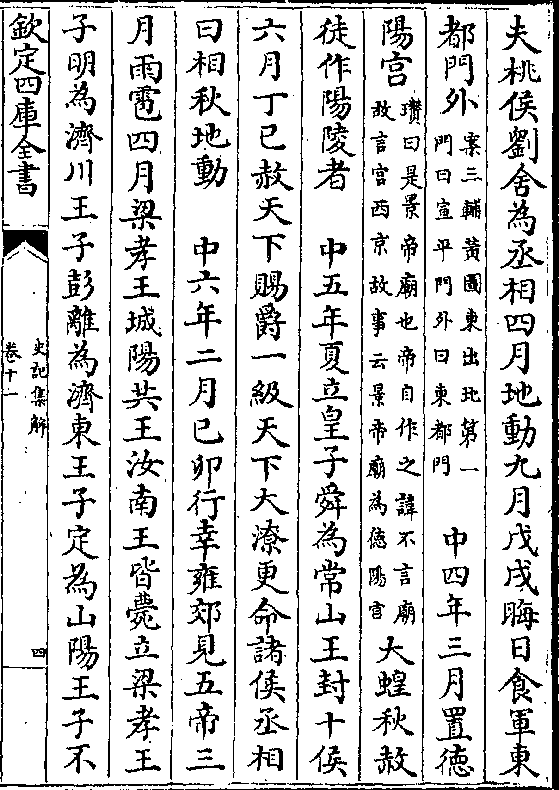 夫桃侯劉舍為丞相四月地動九月戊戌晦日食軍東
都門外案三輔黃圖東出北第一門曰宣平門外曰東都門　中四年三月置德
陽宮瓚曰是景帝廟也帝自作之諱不言廟故言宮西京故事云景帝廟為德陽宮大蝗秋赦
徒作陽陵者　中五年夏立皇子舜為常山王封十侯
六月丁巳赦天下賜爵一級天下大潦更命諸侯丞相
曰相秋地動　中六年二月己卯行幸雍郊見五帝三
月雨雹四月梁孝王城陽共王汝南王皆薨立梁孝王
子明為濟川王子彭離為濟東王子定為山陽王子不
欽定四庫全書
史記集解
卷十一
四